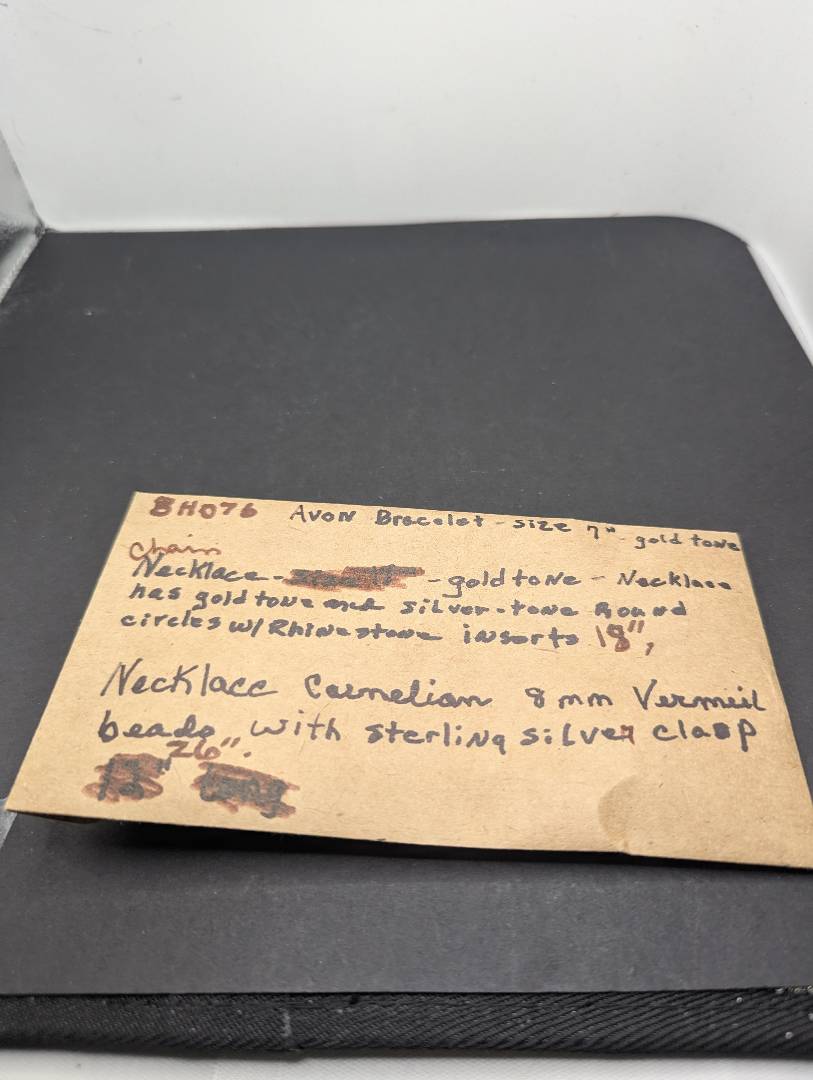 BH076 Avon Bracelet - size 7" - gold tone
chain
Necklace - - gold tone - Necklace
has gold tone and silver-tone Round
circles w/ Rhinestone inserts 18",
Necklace Carnelian 8 mm Vermeil
beads with sterling silver clasp
26".
12" long